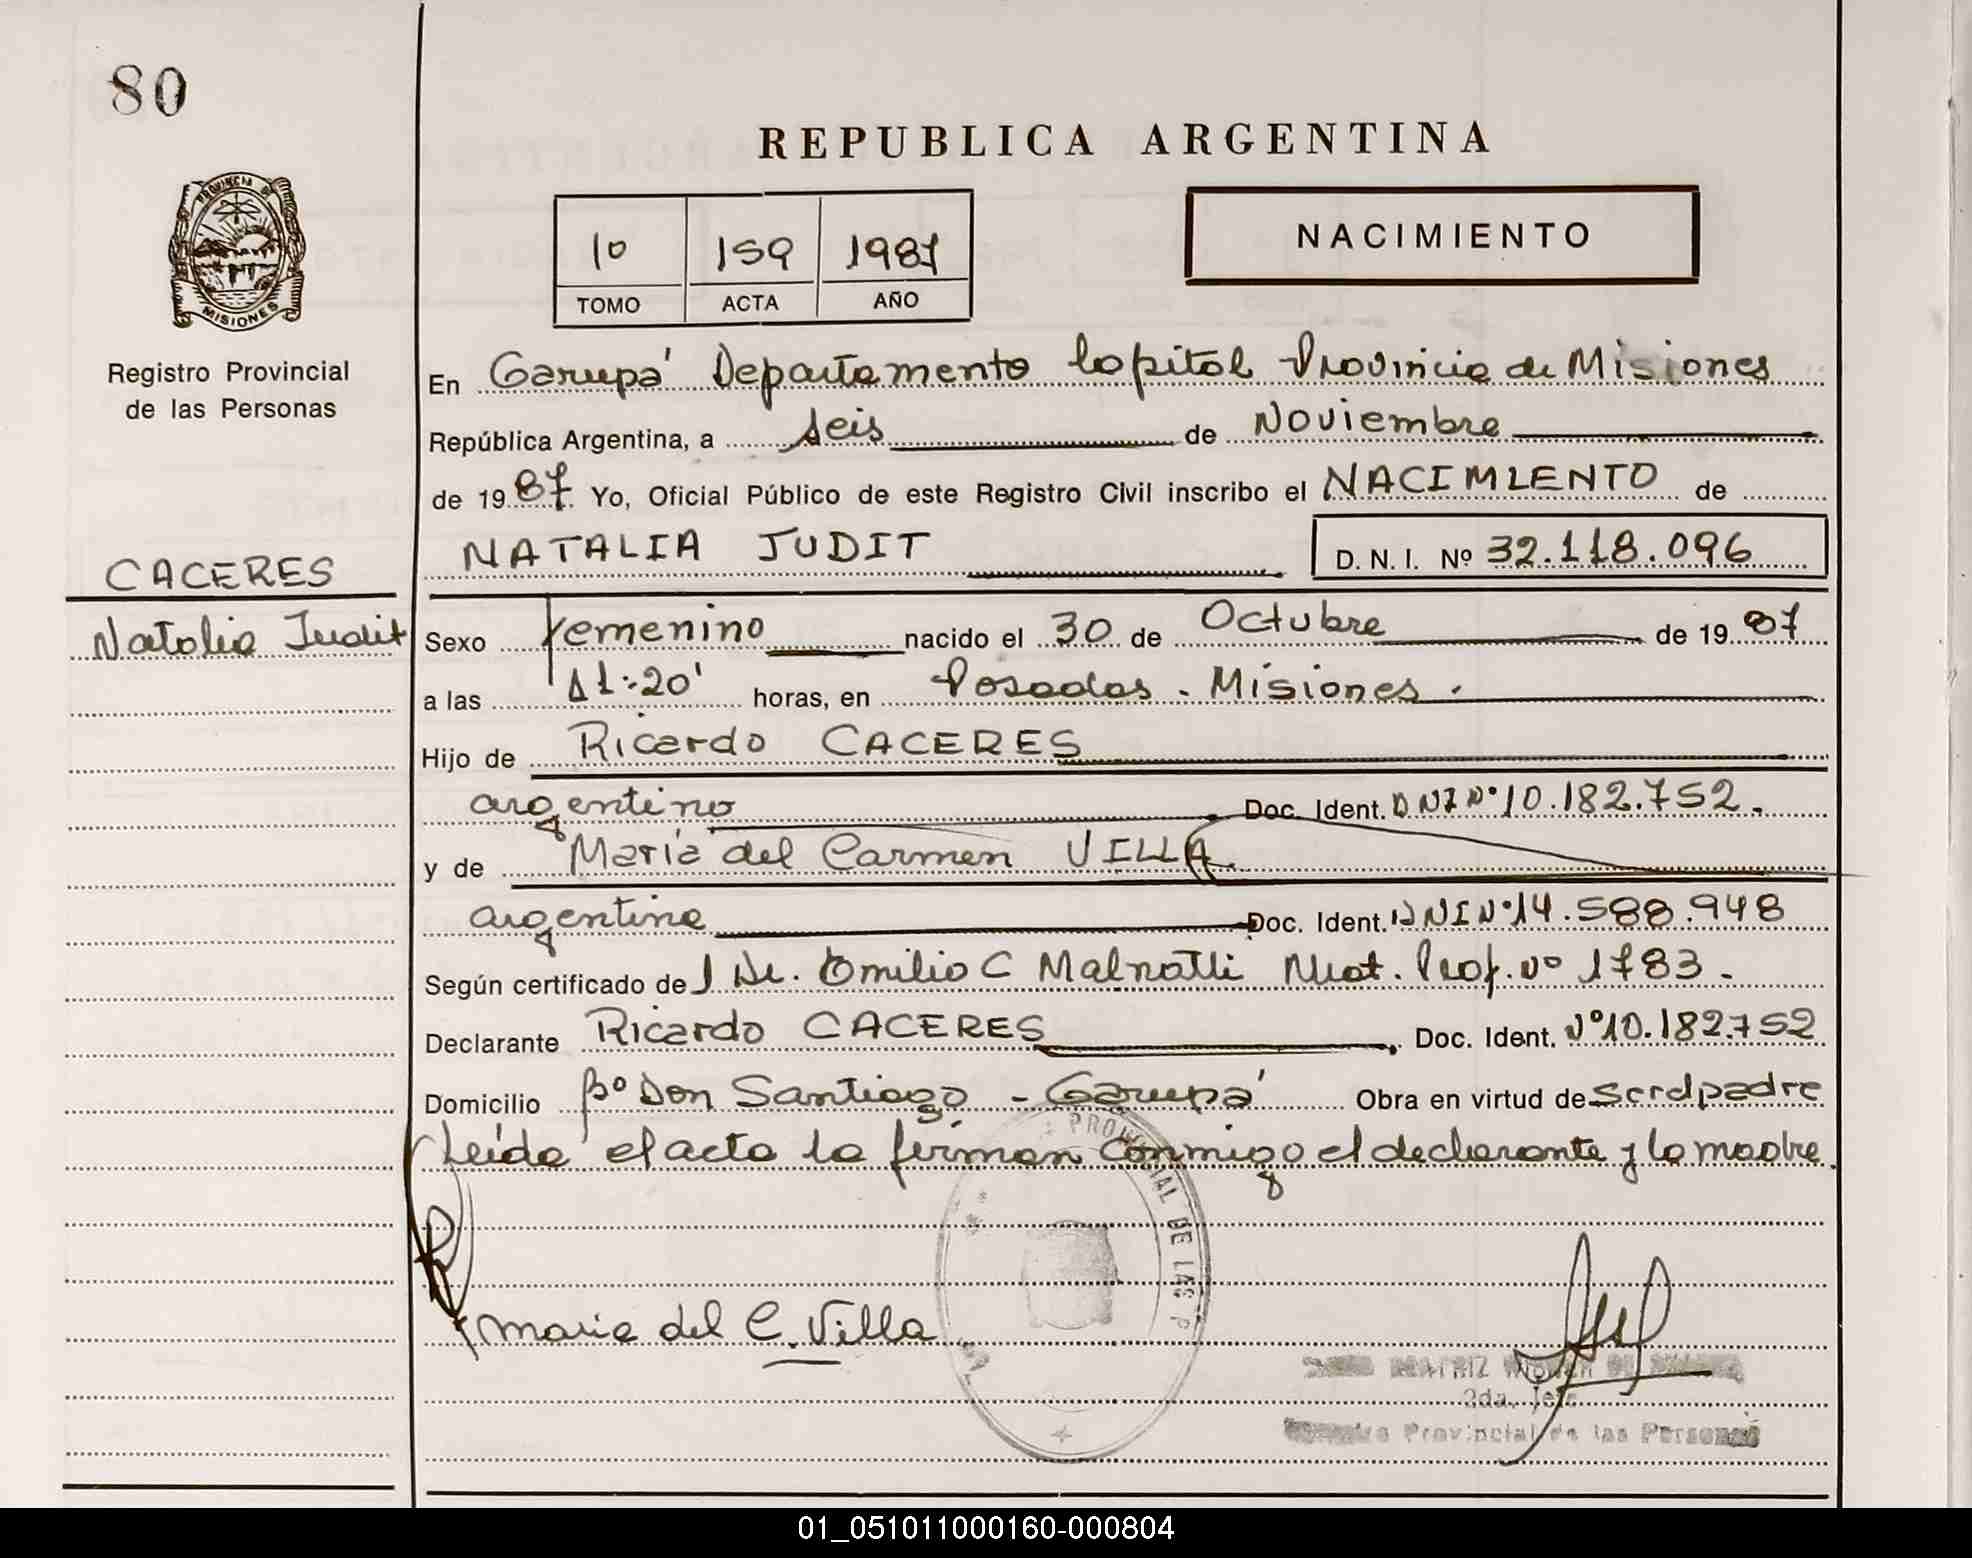 80
REPUBLICA ARGENTINA
PROVINCIA DE
MISIONES
Registro Provincial
de las Personas
10 159 1987
TOMO ACTA AÑO
NACIMIENTO
En Garupá Departamento Capital Provincia de Misiones
República Argentina, a seis de Noviembre
de 1987 Yo, Oficial Público de este Registro Civil inscribo el NACIMIENTO de
CACERES
Natalia Judit
NATALIA JUDIT D. N. I. Nº 32.118.096
Sexo Femenino nacido el 30 de Octubre de 1987
a las 11:20' horas, en Posadas - Misiones.
Hijo de Ricardo CACERES
argentino Doc. Ident. DNI Nº 10.182.752.
y de María del Carmen VILLA
argentina Doc. Ident. DNI Nº 14.588.948
Según certificado de l Dr. Emilio C Malnatti Mat. Prof. nº 1783.
Declarante Ricardo CACERES Doc. Ident. Nº 10.182.752
Domicilio Bº Don Santiago - Garupá Obra en virtud de serelpadre
Leída el acta la firman conmigo el declarante y la madre.
PROVINCIAL DE LAS P
Maria del C. Villa
BEATRIZ
2da. Jefe
Provincial de las Personas
01_051011000160-000804